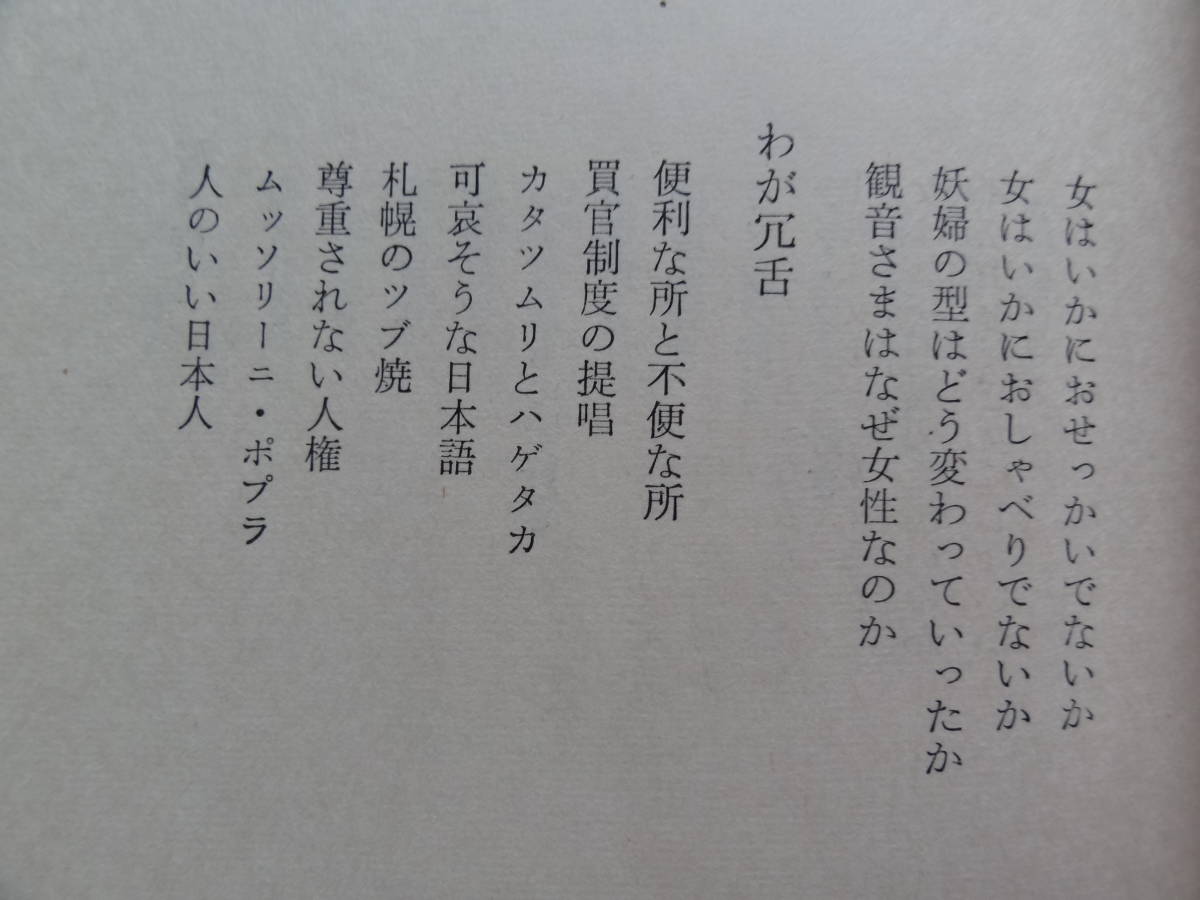 女はいかにおせっかいでないか
女はいかにおしゃべりでないか
妖婦の型はどう変わっていったか
観音さまはなぜ女性なのか
わが冗舌
便利な所と不便な所
買官制度の提唱
カタツムリとハゲタカ
可哀そうな日本語
札幌のツブ焼
尊重されない人権
ムッソリーニ・ポプラ
人のいい日本人